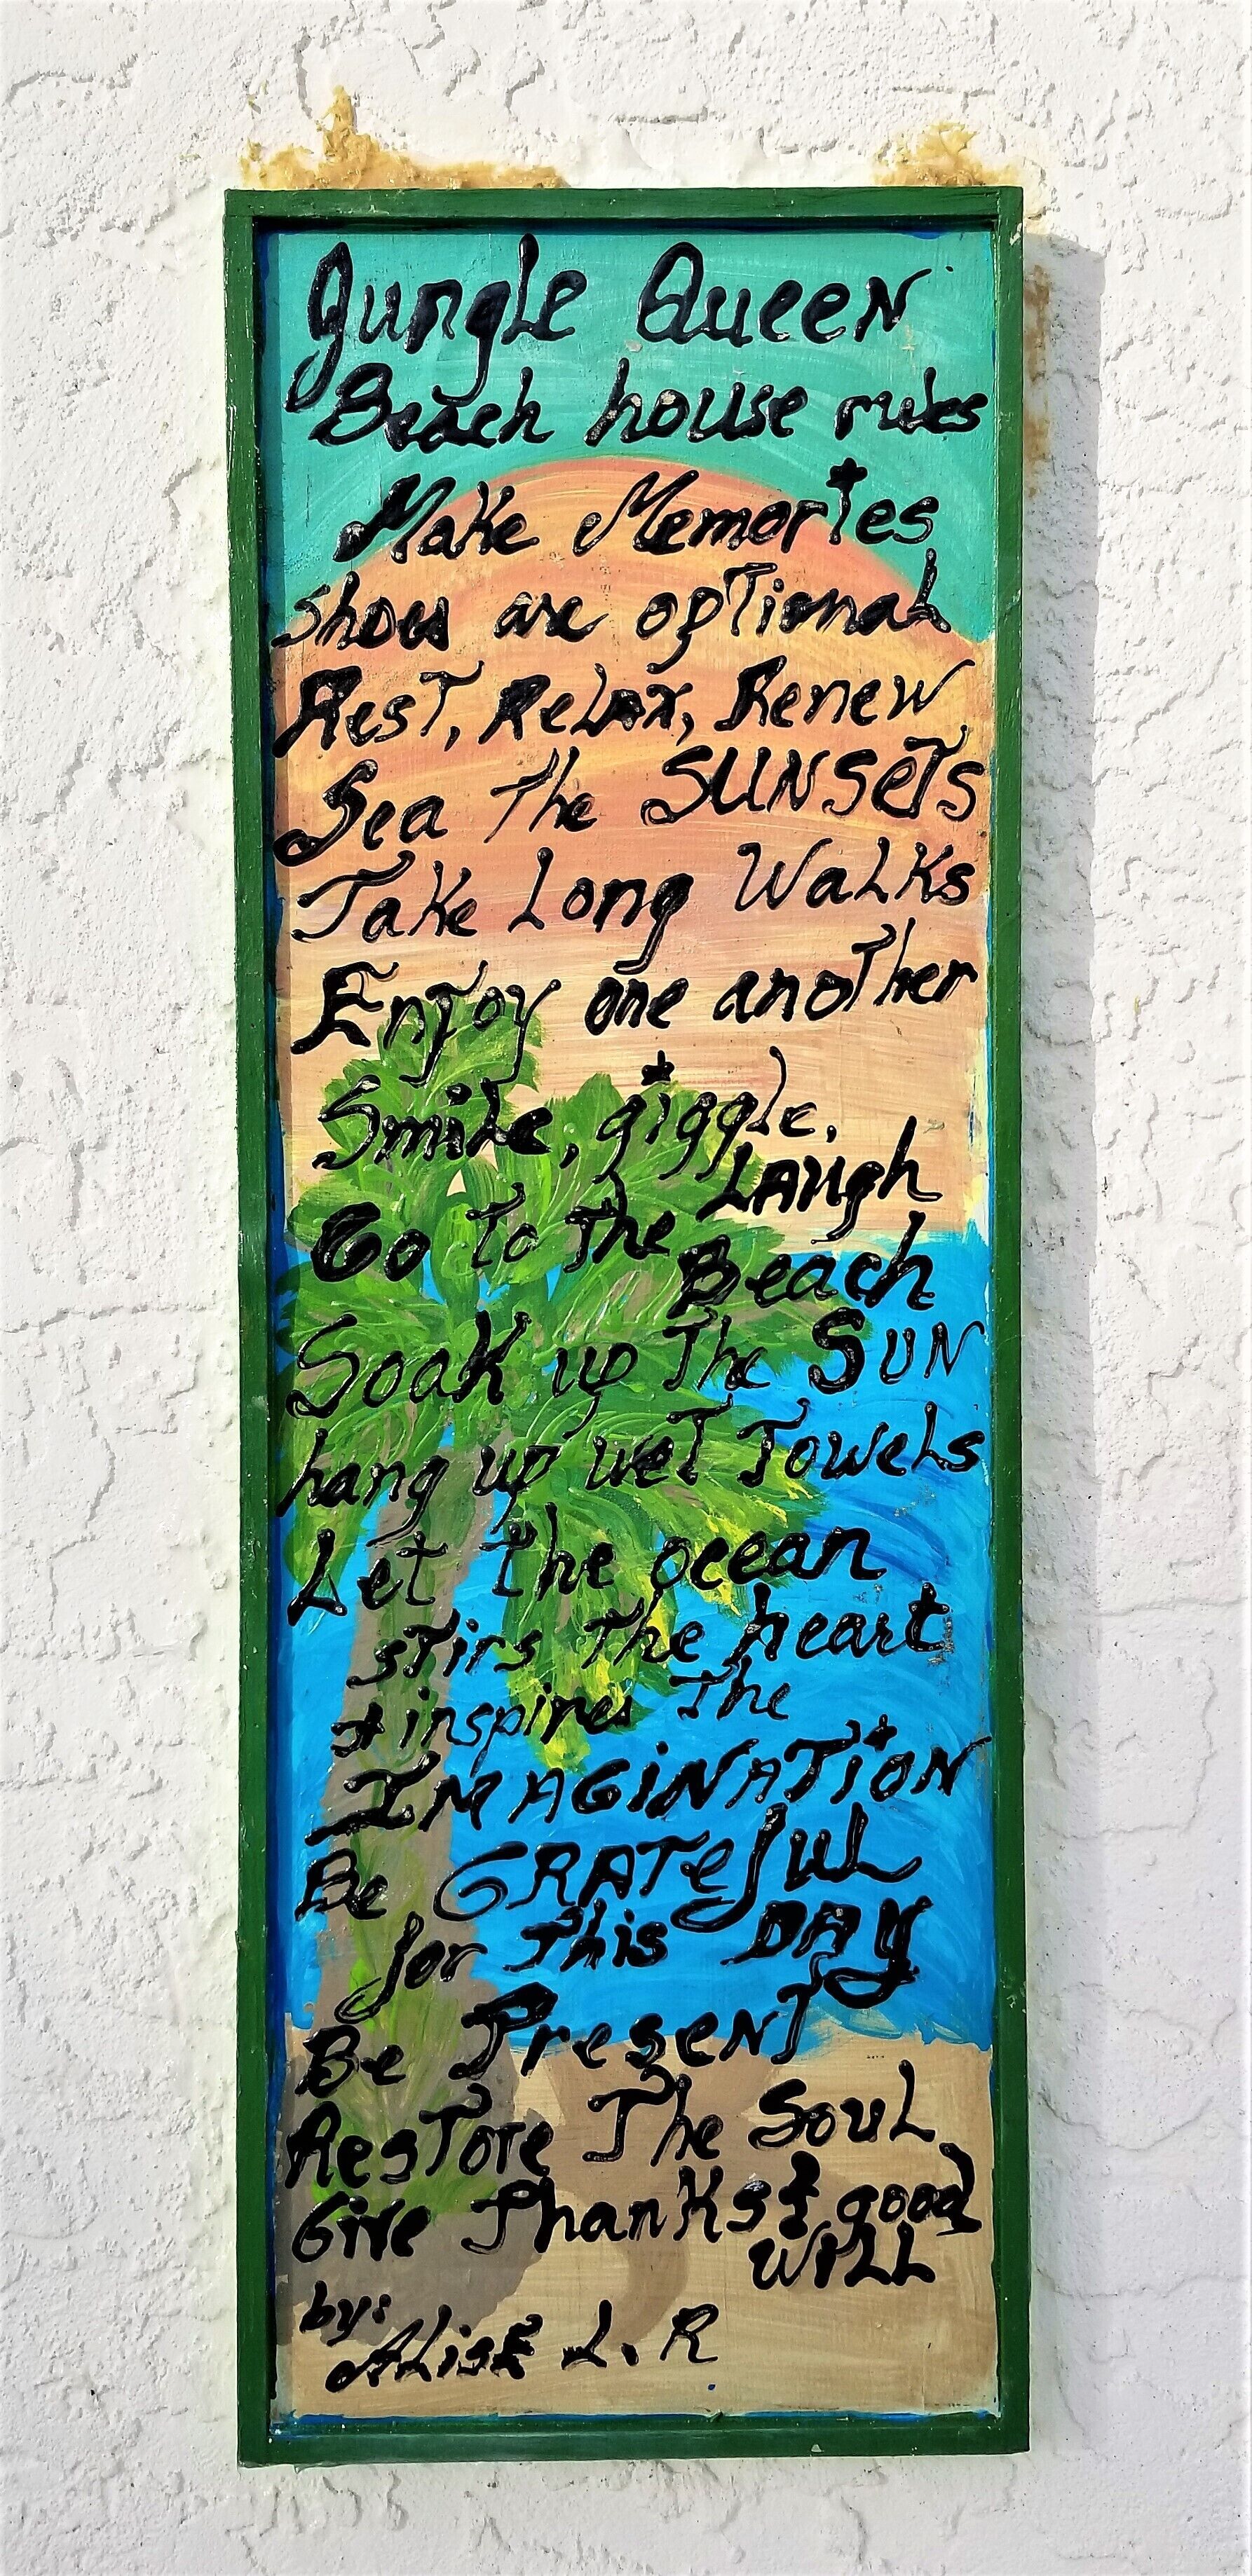 Jungle Queen
Beach house rules
Make Memories
shoes are optional
Rest, Relax, Renew
Sea The SUNSeTs
Take Long Walks
Enjoy one another
Smile, giggle,
LAugh
Go To The
Beach
Soak up The SUN
hang up wet Towels
Let the ocean
stirs The heart
+ inspires The
IMAGINATION
Be GRATeful
for This DAy
Be Present
Restore The Soul
Give Thanks & good
WiLL
by:
Alise L. R